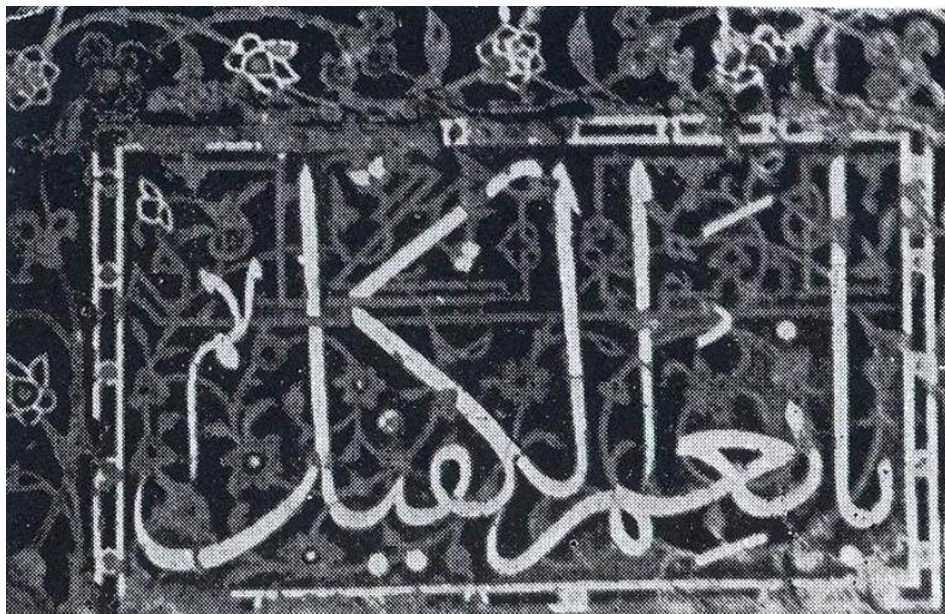 يا نعم الكفيل